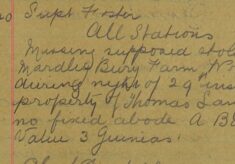 Supt Foster
All Stations
Missing supposed stol
Mardley Bury Farm
during night of 29 ins
property of Thomas
no fixed abode A
Value 3 Guineas.